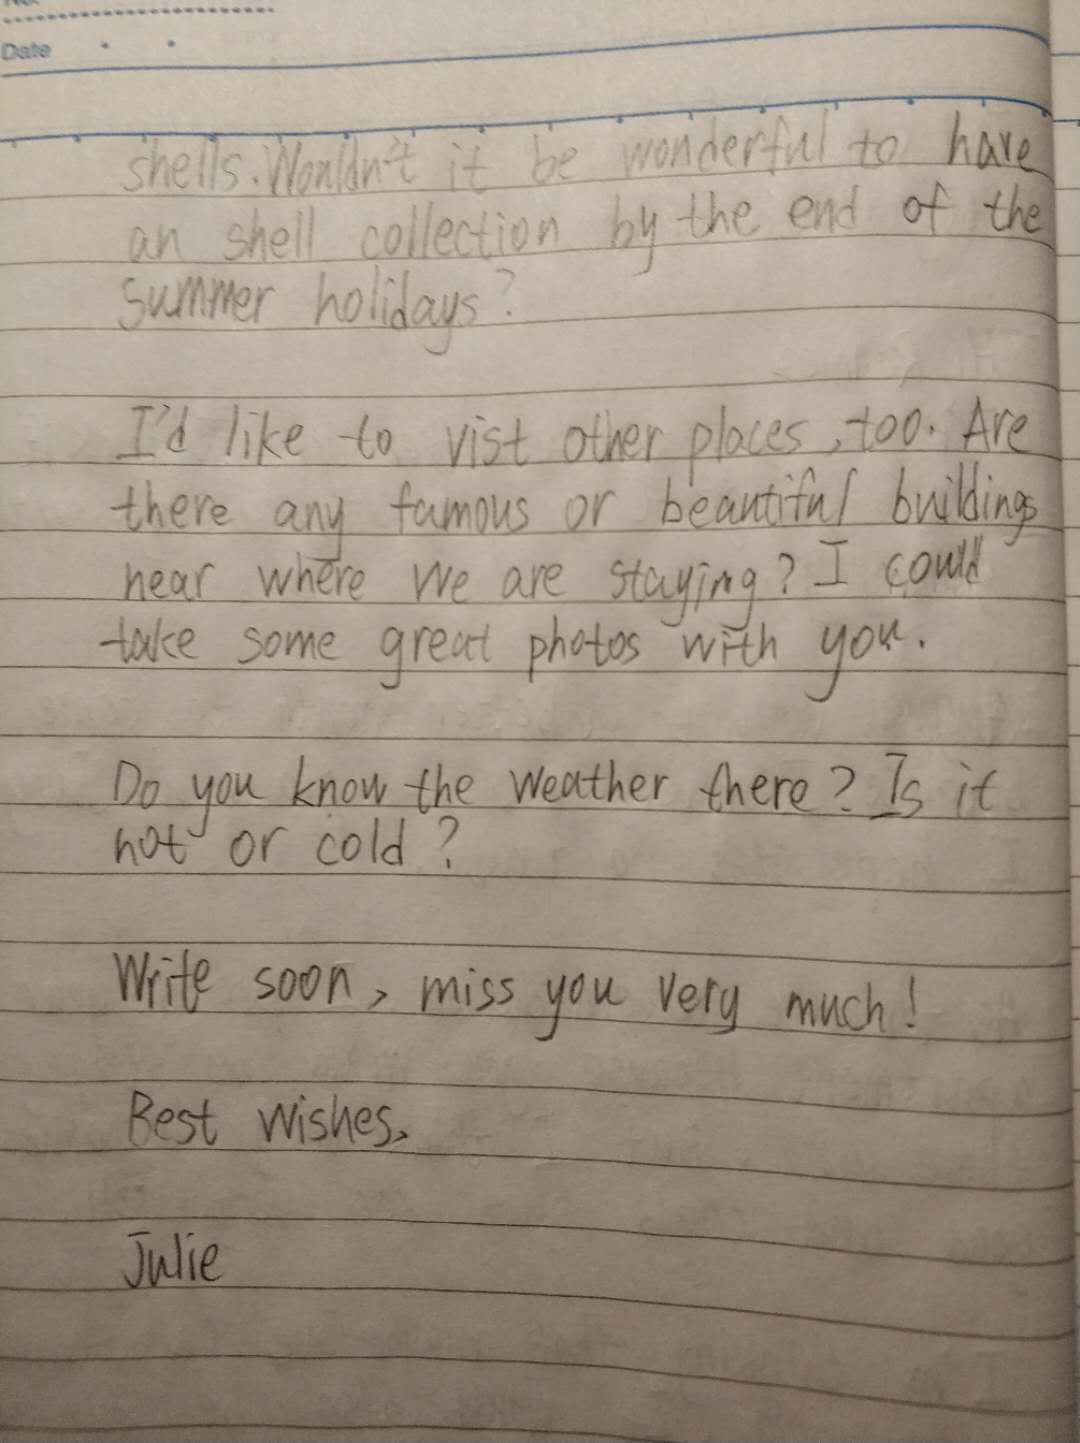 Date
shells. Wouldn't it be wonderful to have
an shell collection by the end of the
summer holidays?
I'd like to vist other places, too. Are
there any famous or beautiful buildings
near where we are staying? I could
take some great photos with you.
Do you know the weather there? Is it
hot or cold?
Write soon, miss you very much!
Best wishes,
Julie